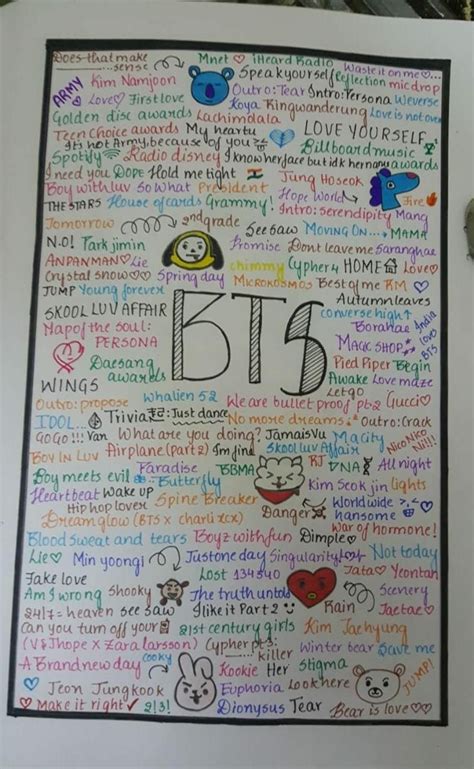 Does that make sense Mnet iHeard Radio Waste it on me
ARMY Kim Namjoon Speak yourself Reflection mic drop
Love First love Outro: Tear Intro: Persona Weverse
Golden disc awards Lachimdala Koya Ringwanderung Love is not over
Teen Choice awards My heartu LOVE YOURSELF
It's not Army, because of you Billboard music awards
Spotify Radio disney I know her face but idk her name
I need you Dope Hold me tight Jung Hoseok
Boy with luv So What President Hope World Fire
THE STARS House of cards Grammy! Intro: serendipity Mang
Tomorrow 2nd grade See saw MOVING ON... MAMA
N.O! Park jimin Promise Dont leave me Saranghae
ANPANMAN Lie chimmy Cypher 4 HOME Love
Crystal snow Spring day MICROKOSMOS Best of me RM
JUMP Young forever Autumn leaves
SKOOL LUV AFFAIR BTS converse high
Map of the soul: PERSONA Borahae India loves BTS
MAGIC SHOP
Daesang awards Pied Piper Begin
WINGS Awake Love maze
Let go
Outro: propose Whalien 52 We are bullet proof pt.2 Gucci
IDOL... Trivia 轉: Just dance No more dreams Outro: Crack
GO GO!!! Van What are you doing? Jamais Vu Ma City Nico NKO Nill!
BOY IN LUV Airplane (Part 2) I'm fine Skool luv Affair
Boy meets evil Paradise Butterfly BBMA RJ DNA All night
Heartbeat Wake up Kim Seok jin Lights
Hip hop lover Spine Breaker Danger World wide hansome
Dream glow (BTS x charli xcx) War of hormone!
Blood sweat and tears Boyz with fun Dimple
Lie Min yoongi Just one day Singularity Lost Not today
Fake love Lost 134340 Tata Yeontan
Am I wrong Shooky The truth untold Scenery
24/7 = heaven see saw I like it Part 2 Rain Jaetae
Can you turn off your 21st century girls Kim Taehyung
(V & Jhope x Zara larsson) Cypher pt 3: killer Winter bear Save me
A Brand new day cooky Kookie Her Stigma JUMP!
Jeon Jungkook Euphoria Look here
Make it right 2! 3! Dionysus Tear Bear is love